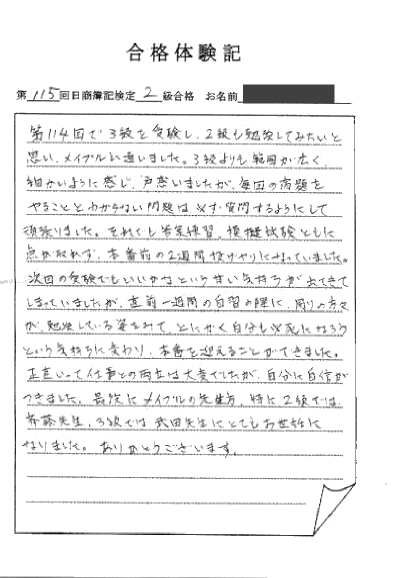 合格体験記
第115回日商簿記検定2級合格 お名前
第114回で3級を受験し、2級も勉強してみたいと
思い、メイプルに通いました。3級よりも範囲が広く、
細かいように感じ、戸惑いましたが、毎回の宿題を
やることとわからない問題は必ず質問するようにして
頑張りました。それでも答案練習、模擬試験ともに
点が取れず、本番前の2週間投げやりになっていました。
次回の受験でもいいかなという甘い気持ちが出てきて
しまっていましたが、直前一週間の自習の際に、周りの方々
が、勉強している姿をみて、とにかく自分も必死になろう
という気持ちに変わり、本番を迎えることができました。
正直いって仕事との両立は大変でしたが、自分に自信が
つきました。最後にメイプルの先生方、特に2級では
斉藤先生、3級では武田先生にとてもお世話に
なりました。ありがとうございます。